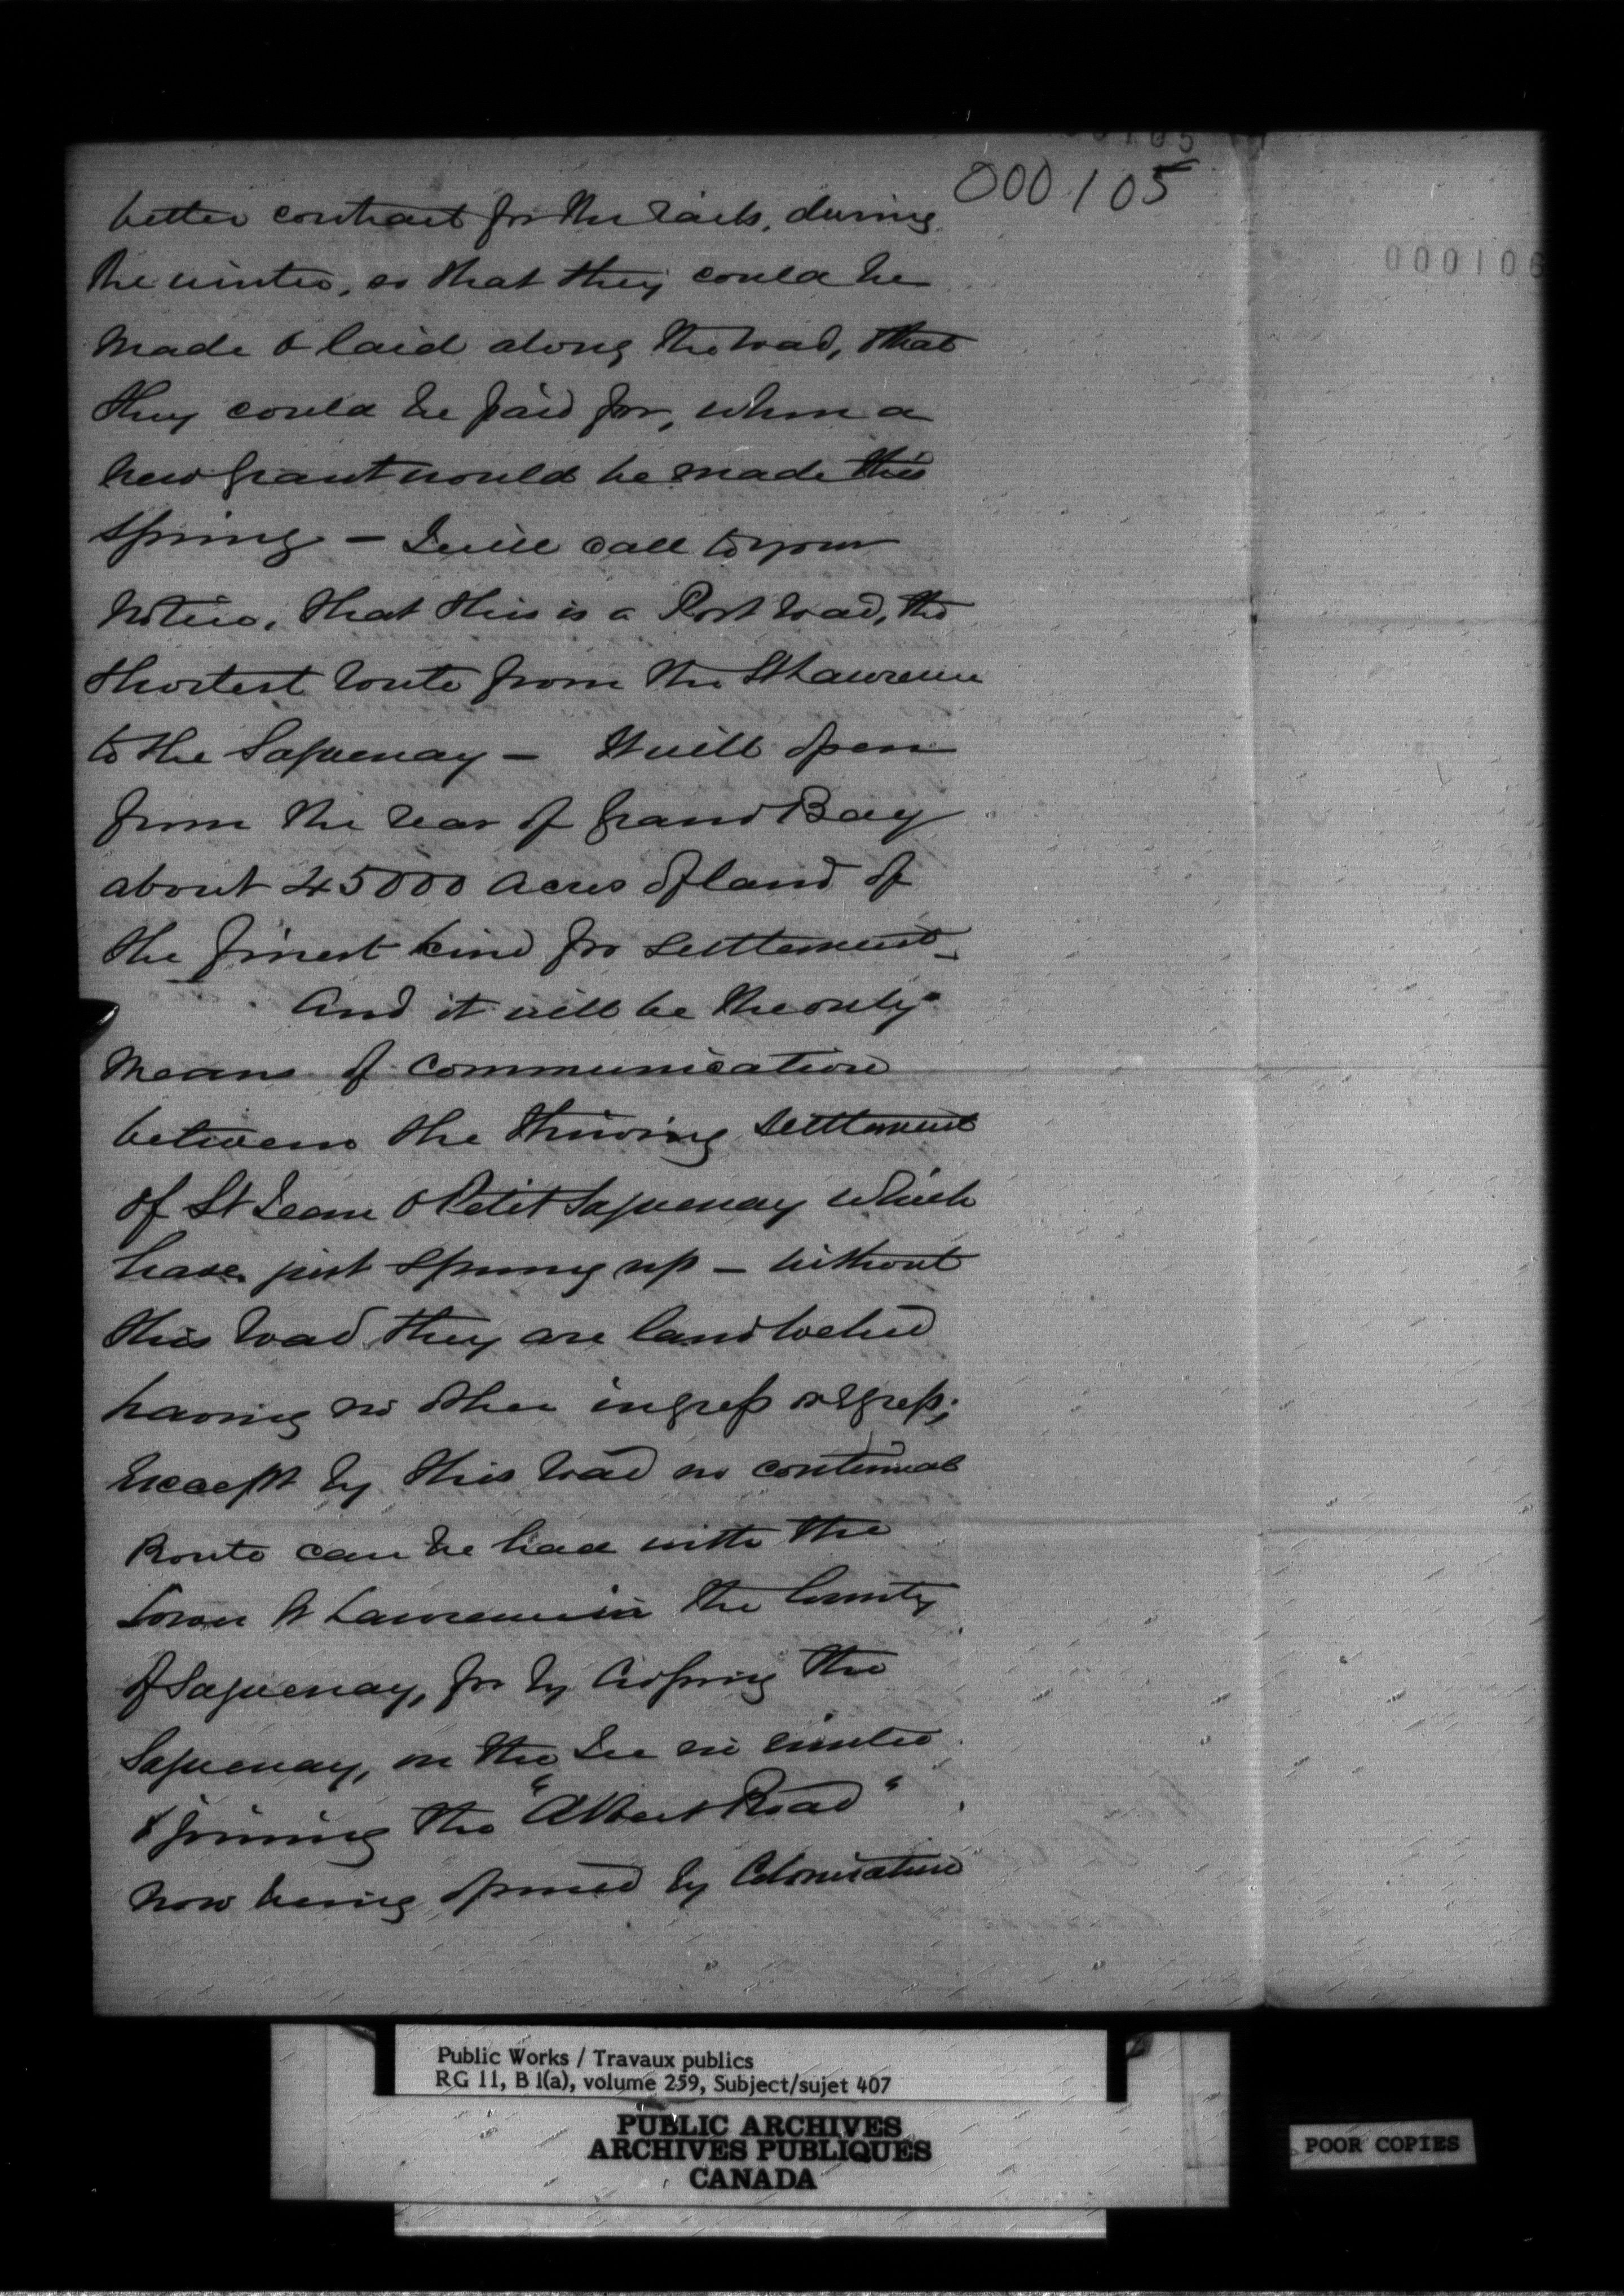 000105
000106
better contract for the rails, during
the winter, so that they could be
made & laid along the road, that
they could be paid for, when a
new grant would be made this
spring – I will call to your
notice, that this is a Post road, the
shortest route from the St Lawrence
to the Saguenay – It will open
from the rear of Grand Bay
about 45000 acres of land of
the finest kind for settlement –
And it will be the only
means of communication
between the thriving settlement
of St Jean & Petit Saguenay which
have just sprung up – without
this road they are landlocked
having no other ingress or Egress;
Except by this road no continual
Route can be had with the
Lower St Lawrence in the County
of Saguenay, for by crossing the
Saguenay, on the Ice in winter
& joining the "Albert Road"
now being opened by Colonisation
Public Works / Travaux publics
RG 11, B 1(a), volume 259, Subject/sujet 407
PUBLIC ARCHIVES
ARCHIVES PUBLIQUES
CANADA
POOR COPIES